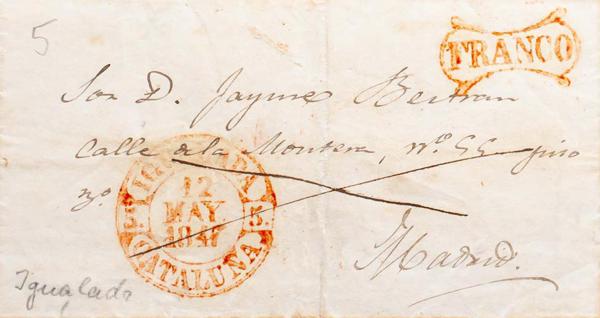 5
FRANCO
Sor D. Jayme Bertran
Calle de la Montera, nº 55 piso
Madrid.
IGUALADA
12
MAY
1847
5.
CATALUÑA
Igualada